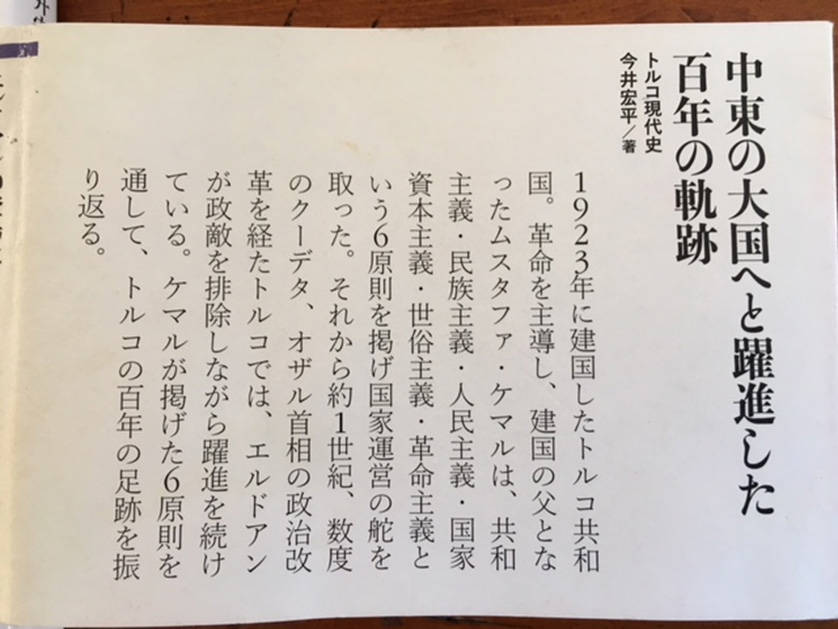 中東の大国へと躍進した
百年の軌跡
トルコ現代史
今井宏平／著
1923年に建国したトルコ共和
国。革命を主導し、建国の父とな
ったムスタファ・ケマルは、共和
主義・民族主義・人民主義・国家
資本主義・世俗主義・革命主義と
いう6原則を掲げ国家運営の舵を
取った。それから約1世紀、数度
のクーデタ、オザル首相の政治改
革を経たトルコでは、エルドアン
が政敵を排除しながら躍進を続け
ている。ケマルが掲げた6原則を
通して、トルコの百年の足跡を振
り返る。